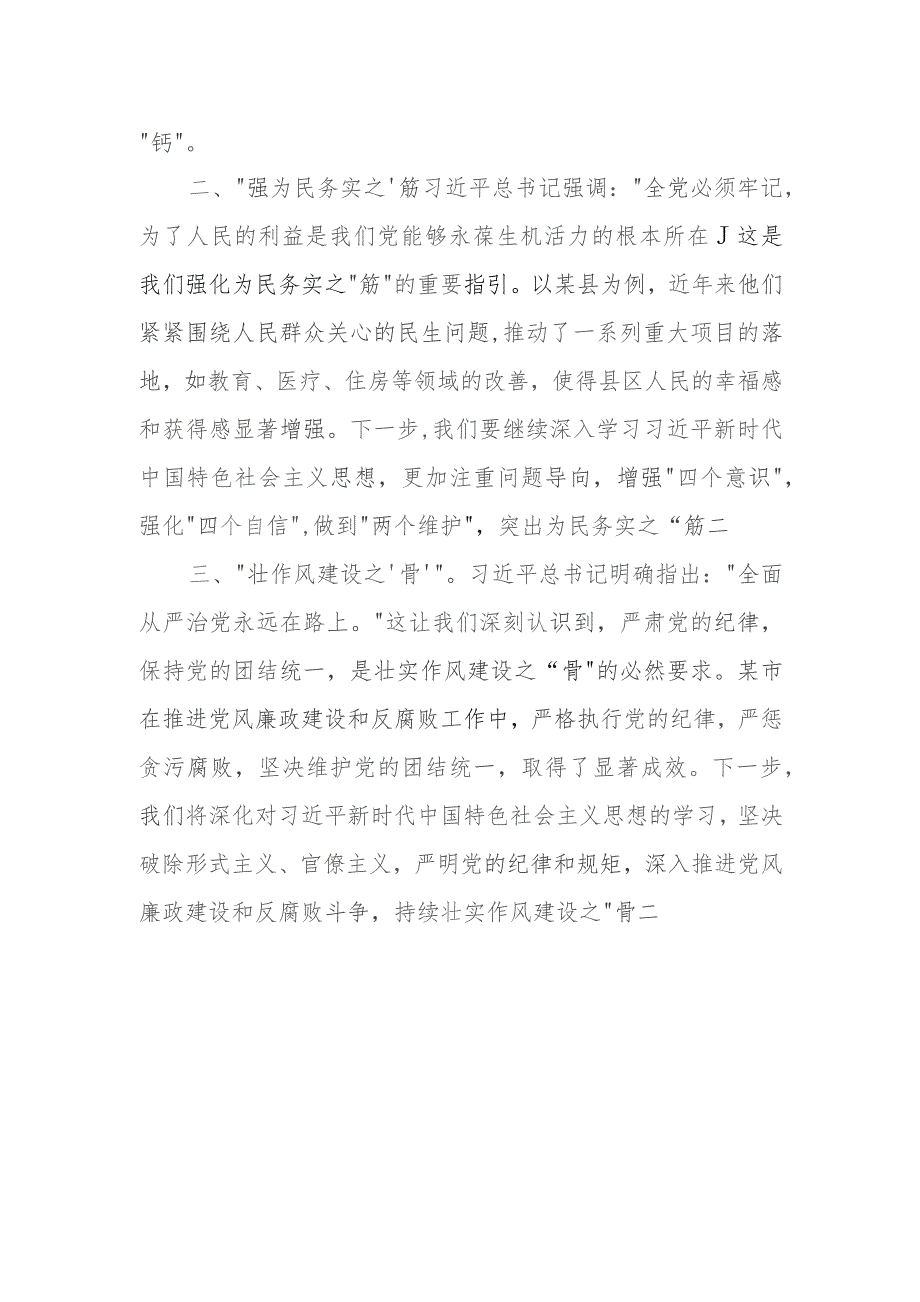 "钙"。
二、"强为民务实之'筋习近平总书记强调："全党必须牢记，
为了人民的利益是我们党能够永葆生机活力的根本所在J这是
我们强化为民务实之"筋"的重要指引。以某县为例，近年来他们
紧紧围绕人民群众关心的民生问题,推动了一系列重大项目的落
地，如教育、医疗、住房等领域的改善，使得县区人民的幸福感
和获得感显著增强。下一步,我们要继续深入学习习近平新时代
中国特色社会主义思想，更加注重问题导向，增强"四个意识"，
强化"四个自信",做到"两个维护"，突出为民务实之“筋二
三、"壮作风建设之'骨'"。习近平总书记明确指出："全面
从严治党永远在路上。"这让我们深刻认识到，严肃党的纪律，
保持党的团结统一，是壮实作风建设之“骨"的必然要求。某市
在推进党风廉政建设和反腐败工作中，严格执行党的纪律，严惩
贪污腐败，坚决维护党的团结统一，取得了显著成效。下一步，
我们将深化对习近平新时代中国特色社会主义思想的学习，坚决
破除形式主义、官僚主义，严明党的纪律和规矩，深入推进党风
廉政建设和反腐败斗争，持续壮实作风建设之"骨二